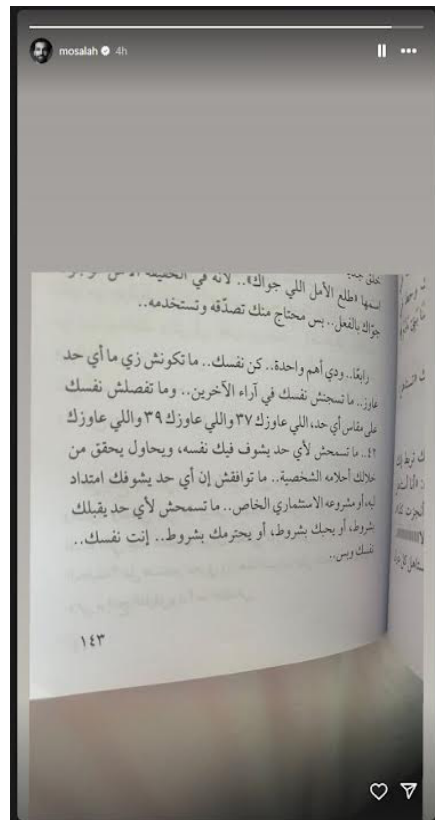 mosalah 4h
خلق
اسمها «طلع الأمل اللي جواك».. لأنه في الحقيقة
جوّاك بالفعل.. بس محتاج منك تصدّقه وتستخدمه..
رابعًا.. ودي أهم واحدة.. كن نفسك.. ما تكونش زي ما أي حد
عاوز.. ما تسجنش نفسك في آراء الآخرين.. وما تفصلش نفسك
على مقاس أي حد، اللي عاوزك ٣٧ واللي عاوزك ٣٩ واللي عاوزك
٤٢.. ما تسمحش لأي حد يشوف فيك نفسه، ويحاول يحقق من
خلالك أحلامه الشخصية.. ما توافقش إن أي حد يشوفك امتداد
ليه، أو مشروعه الاستثماري الخاص.. ما تسمحش لأي حد يقبلك
بشروط، أو يحبك بشروط، أو يحترمك بشروط.. إنت نفسك..
نفسك وبس..
١٤٣